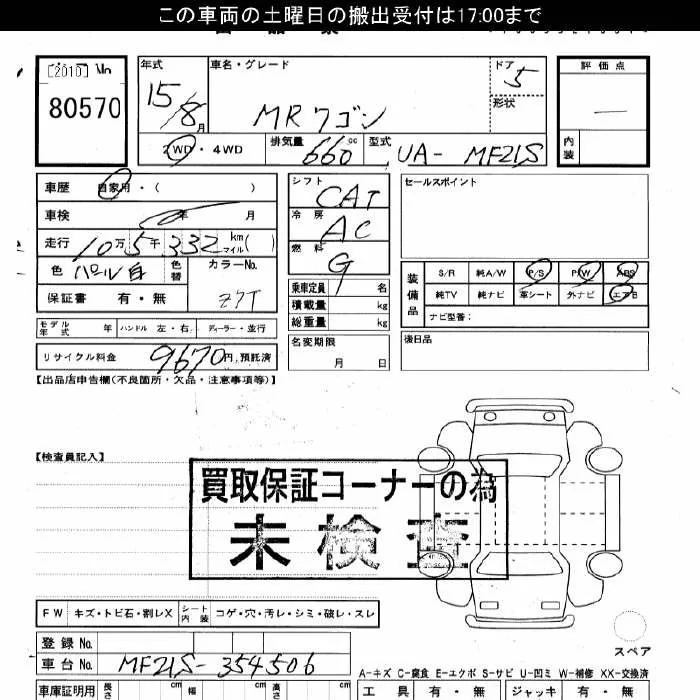 この車両の土曜日の搬出受付は17:00まで
[2010] No
80570
年式 15/8月
車名・グレード MRワゴン
ドア 5
形状
評価点 —
内装
2WD・4WD
排気量 660 cc
型式 UA- MF21S
車歴 自家用・( )
車検 年 月
走行 10万5千332 km マイル( )
色 パール白 色替 カラーNo. Z7T
保証書 有・無
モデル年式 年 ハンドル 左・右 ディーラー・並行
リサイクル料金 9670円,預託済
シフト CAT
冷房 AC
燃料 G
乗車定員 名
積載量 kg
総重量 kg
名変期限 月 日
セールスポイント
装備品
S/R 純A/W P/S P/W ABS
純TV 純ナビ 革シート 外ナビ エアB
ナビ型番:
後日品
【出品店申告欄(不良箇所・欠品・注意事項等)】
【検査員記入】
買取保証コーナーの為
未検査
FW キズ・トビ石・割レX シート内装 コゲ・穴・汚レ・シミ・破レ・スレ
スペア
登録No.
車台No. MF21S-354506
A-キズ C-腐食 E-エクボ S-サビ U-凹ミ W-補修 XX-交換済
車庫証明用 長さ cm 幅 cm 高さ cm
工具 有・無 ジャッキ 有・無